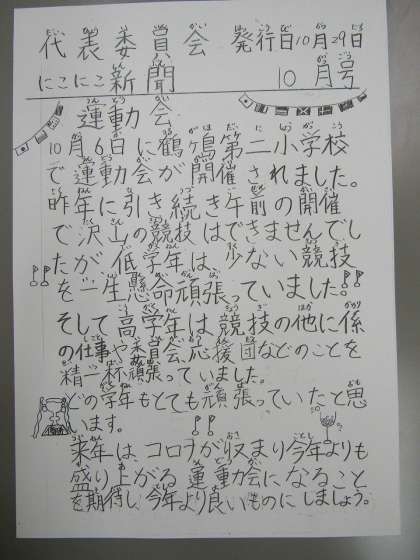 代表委員会 発行日10月29日
にこにこ新聞 10月号
運動会
10月6日に鶴ヶ島第二小学校
で運動会が開催されました。
昨年に引き続き午前の開催
で沢山の競技はできませんでし
たが、低学年は、少ない競技
を一生懸命頑張っていました。
そして高学年は競技の他に係
の仕事や委員会、応援団などのことを
精一杯頑張っていました。
どの学年もとても頑張っていたと思
います。
来年は、コロナが収まり今年よりも
盛り上がる運動会になること
を期待し、今年より良いものにしましょう。